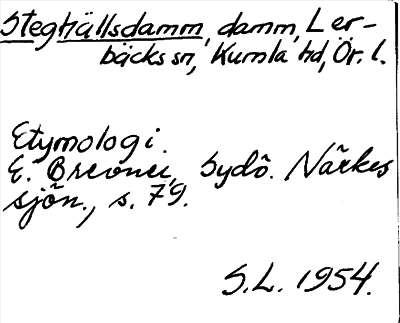 Steghällsdamm, damm, Ler-
bäcks sn, Kumla hd, Ör. l.
Etymologi.
E. Brevner, Sydö. Närkes
sjön., s. 79.
S.L. 1954.